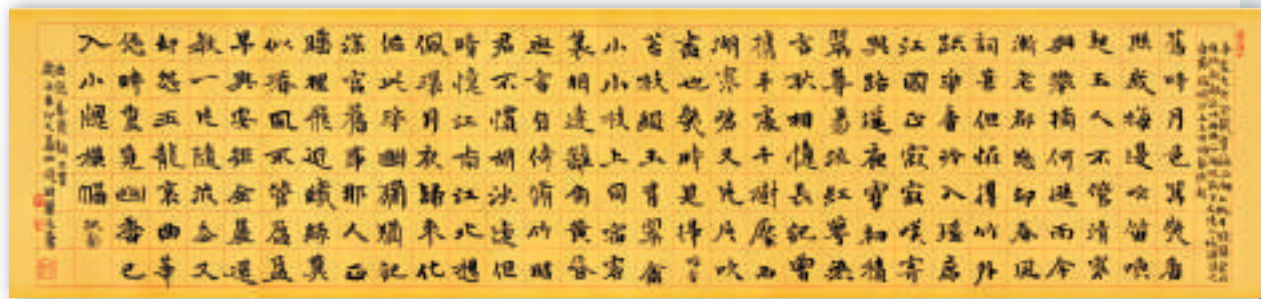 舊時月色算幾番
照我梅邊吹笛喚
起玉人不管清寒
與攀摘何遜而今
漸老都忘卻春風
詞筆但怪得竹外
疏華香冷入瑤席
江國正寂寂嘆寄
與路遙夜雪初積
翠尊易泣紅萼無
言耿相憶長記曾
攜手處千樹壓西
湖寒碧又片片吹
盡也幾時見得
苔枝綴玉有翠禽
小小枝上同宿客
裏相逢籬角黃昏
無言自倚脩竹昭
君不慣胡沙遠但
暗憶江南江北想
佩環月夜歸來化
作此花幽獨猶記
深宮舊事那人正
睡裏飛近蛾綠莫
似春風不管盈盈
早與安排金屋還
教一片隨流去又
卻怨玉龍哀曲等
恁時重覓幽香已
入小窗橫幅